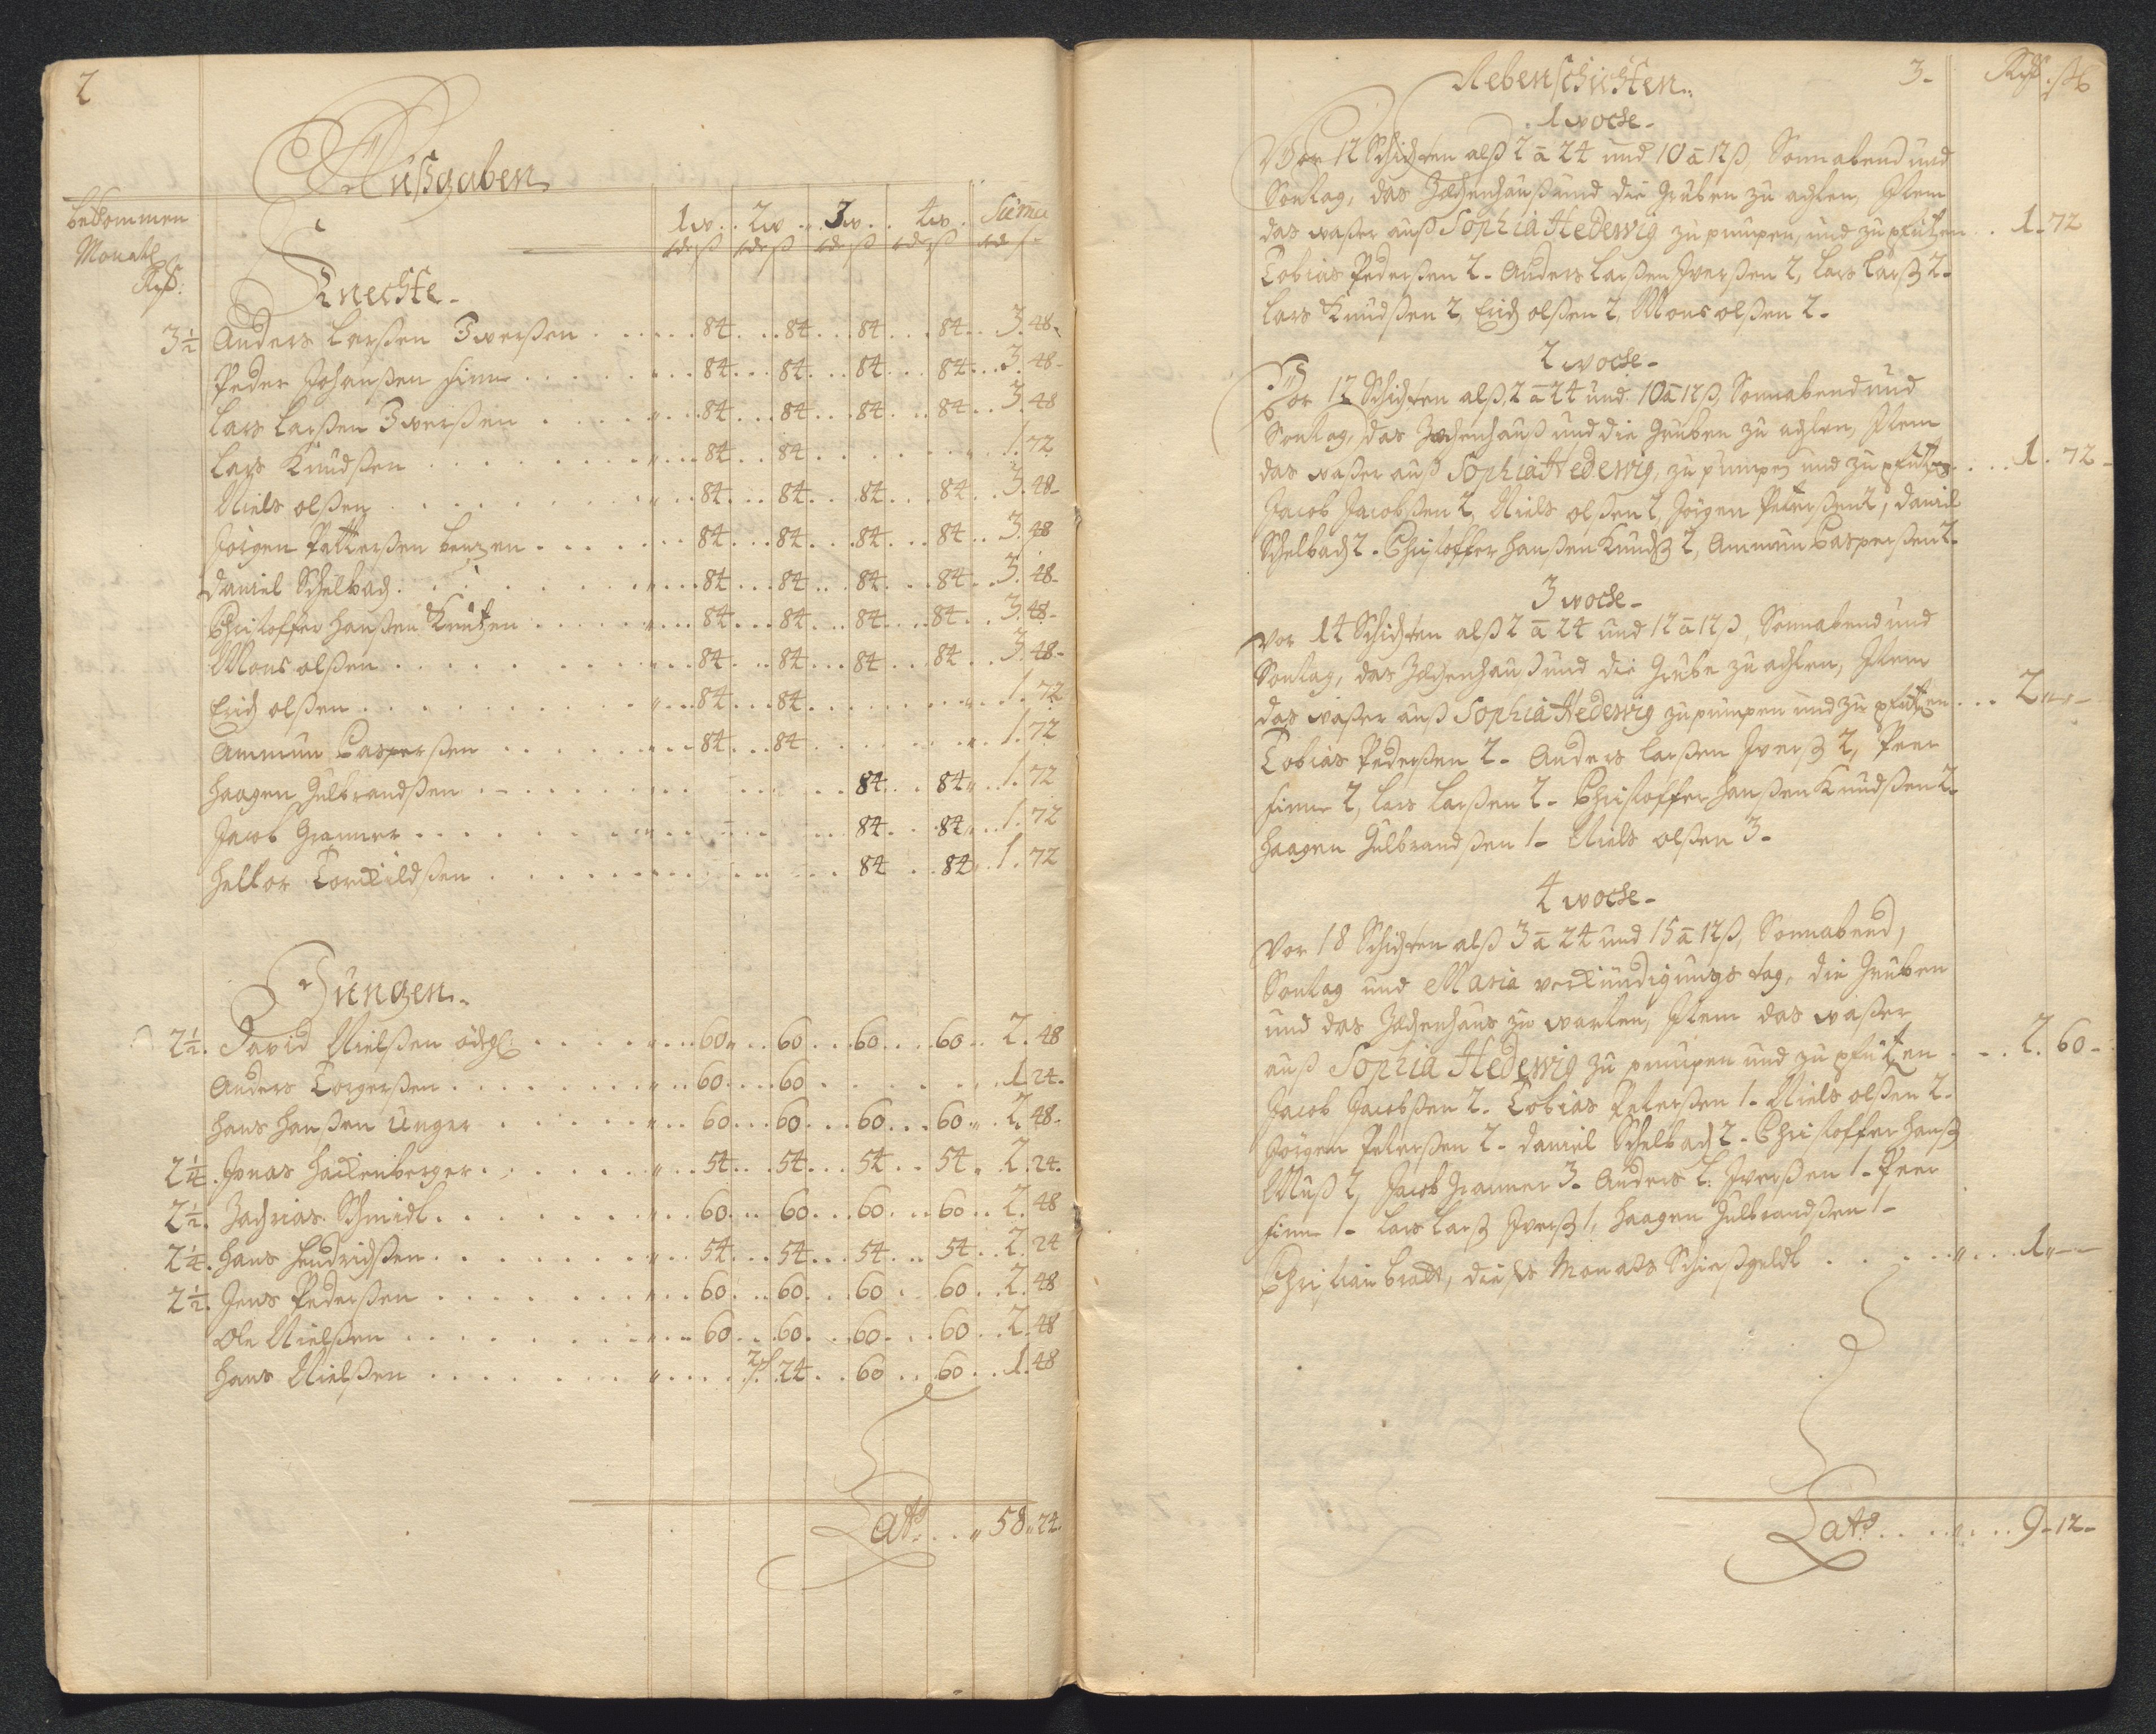 2
Außgaben
bekommen
Monatl
Rdß:
1w. 2w. 3w. 4w. Suma
rdr ß rdr ß rdr ß rdr ß rdr ß
Knechte-
3½ Anders Larßen Iwerßen . . . 84 . . 84 . . 84 . . 84 . . 3. 48-
Peder Johanßen Finne . . . 84 . . 84 . . 84 . . 84 . . 3. 48-
Lars Larßen Iwerßen . . . 84 . . 84 . . 84 . . 84 . . 3. 48
Lars Knudßen . . . 84 . . 84 . . . 1. 72
Niels olßen . . . 84 . . 84 . . 84 . . 84 . . 3. 48-
Jörgen Petterßen . . . 84 . . 84 . . 84 . . 84 . . 3. 48
Daniel Schelbach . . . 84 . . 84 . . 84 . . 84 . . 3. 48-
Christoffer Hanßen Knutzen . . . 84 . . 84 . . 84 . . 84 . . 3. 48-
Mons olßen . . . 84 . . 84 . . 84 . . 84 . . 3. 48-
Erich olßen . . . 84 . . 84 . . . 1. 72
Ammun Casperßen . . . 84 . . 84 . . . 1. 72
Haagen Gulbrandßen . . . 84 . . 84 . . 1. 72
Jacob Gramer . . . 84 . . 84 . . 1. 72
Helkor Torkildßen . . . 84 . . 84 . . 1. 72
Jungen-
2½. David Nielßen . . . 60 . . 60 . . 60 . . 60 . . 2. 48
Anders Torgerßen . . . 60 . . 60 . . . 1. 24-
Hans Hanßen Unger . . . 60 . . 60 . . 60 . . 60 . . 2. 48-
2¼. Jonas Hackenberger . . . 54 . . 54 . . 54 . . 54 . . 2. 24-
2½. Zachrias Schmidt . . . 60 . . 60 . . 60 . . 60 . . 2. 48
2¼. Hans Hendrichßen . . . 54 . . 54 . . 54 . . 54 . . 2. 24
2½. Jens Pederßen . . . 60 . . 60 . . 60 . . 60 . . 2. 48
Ole Nielßen . . . 60 . . 60 . . 60 . . 60 . . 2. 48
Hans Nielßen . . . 24 . . 60 . . 60 . . 1. 48
Lats . . . 58 " 24.
Nebenschichten. 3- Rdß. ß
1 woche-
Vor 12 Schichten alß 2 a 24 und 10 a 12 ß, Sonnabend und
Sontag, das Zechenhauß und die Gruben zu achten, Item
das waßer auß Sophia Hedewig zu pumpen, und zu pfützen . . 1. 72
Tobias Pederßen 2- Anders Larßen Iverßen 2, Lars Larß 2-
Lars Knudßen 2, Erich olßen 2, Mons olßen 2-
2 woche-
Vor 12 Schichten alß 2 a 24 und 10 a 12 ß, Sonnabend und
Sontag, das Zechenhauß und die Gruben zu achten, Item
das waßer auß Sophia Hedewig, zu pumpen und zu pfützen . . 1. 72-
Jacob Jacobßen 2, Niels olßen 2, Jörgen Peterßen 2, Daniel
Schelbach 2- Christoffer Hanßen Knudß 2, Ammun Casperßen 2-
3 woche-
Vor 14 Schichten alß 2 a 24 und 12 a 12 ß, Sonnabend und
Sontag, das Zechenhauß und die Grube zu achten, Item
das waßer auß Sophia Hedewig zu pumpen und zu pfützen . . . 2 " -
Tobias Pederßen 2- Anders Larßen Iverß 2, Peer
Finne 2, Lars Larßen 2- Christoffer Hanßen Knudßen 2-
Haagen Gulbrandßen 1- Niels olßen 3-
4 woche-
Vor 18 Schichten alß 3 a 24 und 15 a 12 ß, Sonnabend,
Sontag und Maria verkündigungs tag, die Gruben
und das Zechenhaus zu warten, Item das waßer
auß Sophia Hedewig zu pumpen und zu pfützen . . . 2. 60-
Jacob Jacobßen 2- Tobias Peterßen 1- Niels olßen 2-
Jörgen Peterßen 2- Daniel Schelbach 2- Christoffer Hanß
Muß 2, Jacob Gramer 3- Anders L. Iverßen 1- Peer
Finne 1- Lars Larß Iverß 1, Haagen Gulbrandßen 1-
Christian Bratt, dieses Monats Schießgeldt . . . 1 " -
Lats . . . 9-12-